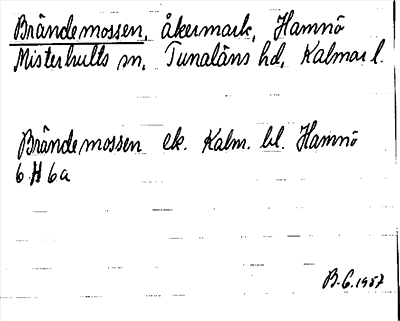 Brändemossen, åkermark, Hamnö
Misterhults sn, Tunaläns hd, Kalmar l.
Brändemossen ek. Kalm. bl. Hamnö
6 H 6a
B.G. 1957